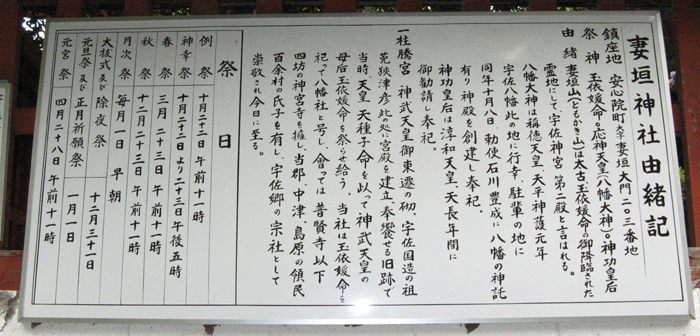 妻垣神社由緒記
鎮座地 安心院町大字妻垣大門二〇三番地
祭神 玉依媛命○応神天皇(八幡大神)○神功皇后
由緒 妻垣山(ともかき山)は太古玉依媛命の御降臨された
霊地にして宇佐神宮第二殿と言はれる。
八幡大神は稱徳天皇、天平神護元年
宇佐八幡此の地に行幸、駐輦の地に
同年十月八日、勅使石川豊成に八幡の神託
有り神殿を創建し奉祀。
神功皇后は淳和天皇、天長年間に
御勧請し奉祀。
一柱騰宮 神武天皇御東遷の砌、宇佐国造の祖
菟狹津彦此処に宮殿を建立奉饗せる旧跡で
当時天皇天種子命を以って神武天皇の
母后玉依媛命を祭らせ給う、当社は玉依媛命を
祀って八幡社と号し、曾っては普賢寺以下
四坊の神宮寺を擁し、当郡、中津、島原の領民
百余村の氏子を有し、宇佐郷の宗社として
崇敬され今日に至る。
祭日
例祭 十月二十二日 午前十一時
神幸祭 十月二十二日より二十三日午後五時
春祭 三月二十三日 午前十一時
秋祭 十二月二十三日 午前十一時
月次祭 毎月一日 早朝
大祓式及び除夜祭 十二月三十一日
元旦祭及び正月祈願祭 一月一日
元宮祭 四月二十八日 午前十一時